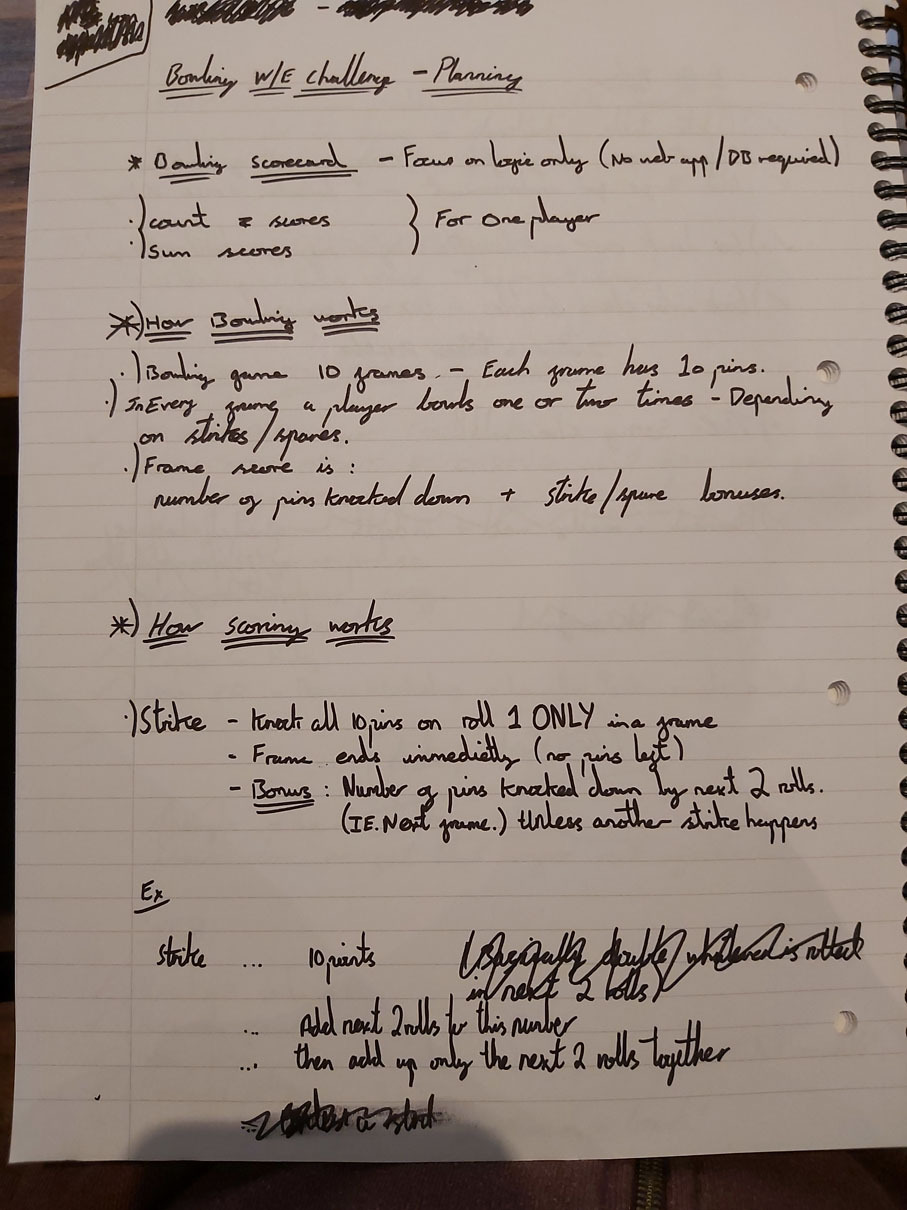 Bowling W/E Challenge - Planning
* Bowling scorecard - Focus on logic only (No web app / DB required)
·) count scores } For one player
·) Sum scores
*) How Bowling works
·) Bowling game 10 frames. - Each frame has 10 pins.
·) In Every frame a player bowls one or two times - Depending
on strikes / spares.
·) Frame score is :
number of pins knocked down + strike / spare bonuses.
*) How scoring works
·) Strike - Knock all 10 pins on roll 1 ONLY in a frame
- Frame ends immedietly (no pins left)
- Bonus : Number of pins knocked down by next 2 rolls.
(IE. Next frame.) Unless another strike happens
Ex
strike ... 10 points (Basically double whatever is rolled
in next 2 rolls)
... Add next 2 rolls to this number
... then add up only the next 2 rolls together